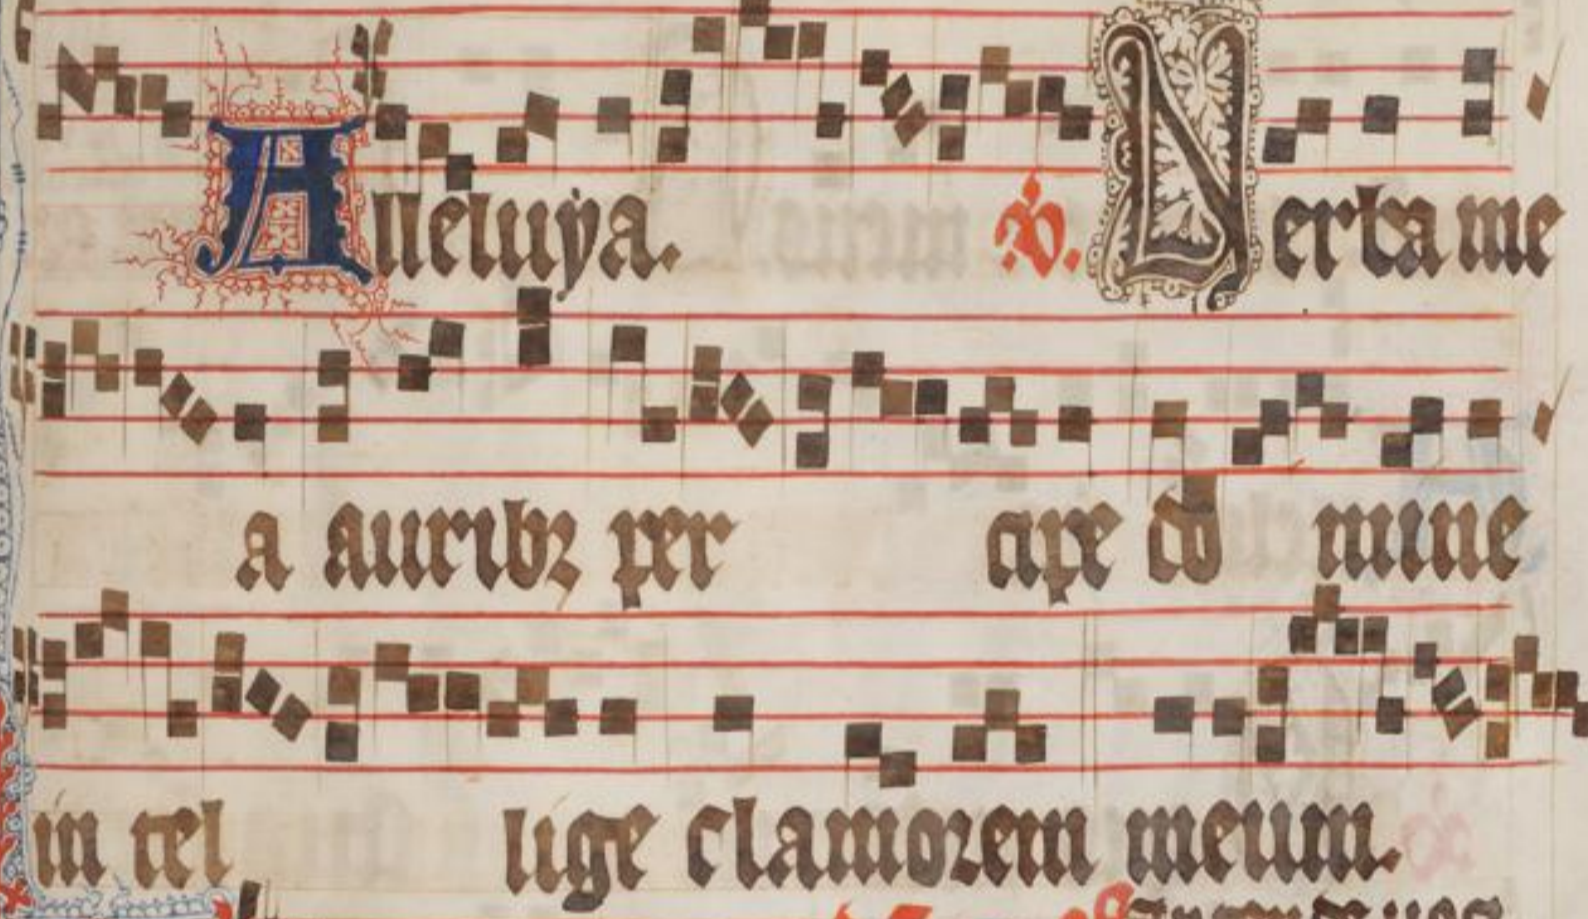 Alleluya. V. Verba me
a auribz per cipe do mine
in tel lige clamorem meum.